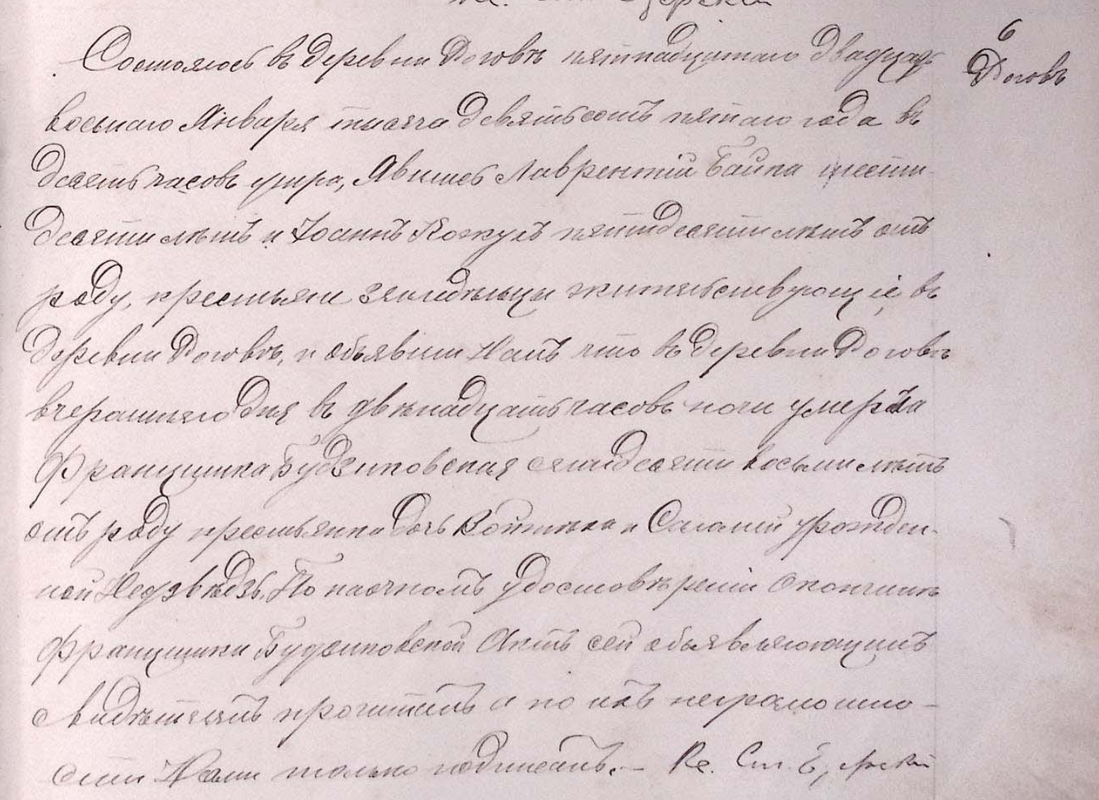 6
Роговъ
Состоялось въ деревни Роговѣ пятнадцатаго двадцать
восьмаго Января тысяча девятьсотъ пятаго года въ
десять часовъ утра, Явились Лаврентій Байка шести-
десяти лѣтъ и Іоаннъ Кожухъ пятидесяти лѣтъ отъ
роду, крестьяне земледѣльцы жительствующіе въ
деревни Роговѣ, и объявили Намъ что въ деревни Роговѣ
вчерашняго дня въ двѣнадцать часовъ ночи умерла
Францишка Будзиковская семидесяти восьми лѣтъ
отъ роду крестьянка дочь и Саломіи урожден-
ной По наочномъ удостовѣреніи о кончинѣ
Францишки Будзиковской Актъ сей объявляющимъ
свидѣтелямъ прочитанъ и по ихъ неграмотно-
сти Нами только подписанъ. — Кс.